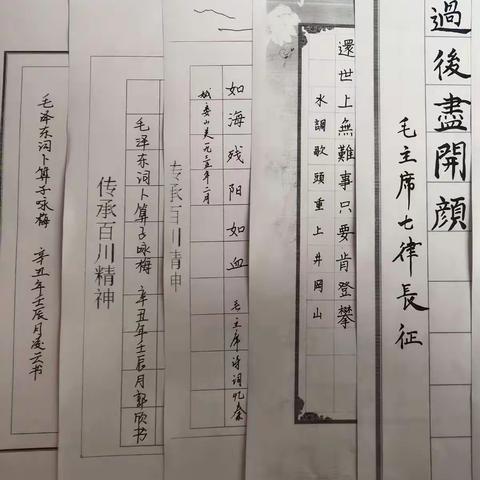 過後盡開顔
毛主席七律長征
還世上無難事只要肯登攀
水調歌頭重上井岡山
如海残阳如血 毛主席诗词忆秦
娥娄山关一九三五年二月
传承百川精神
毛泽东词卜算子咏梅 辛丑年壬辰月郭欣书
传承百川精神
毛泽东词卜算子咏梅 辛丑年壬辰月凌云书